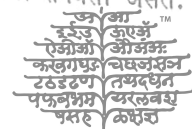 अ आ ™
इ ई उ ऊ ए अॅ
ऐ ओ ऑ औ अं अः
क ख ग घ ङ च छ ज झ ञ
ट ठ ड ढ ण त थ द ध न
प फ ब भ म य र ल व श
ष स ह ळ क्ष ज्ञ